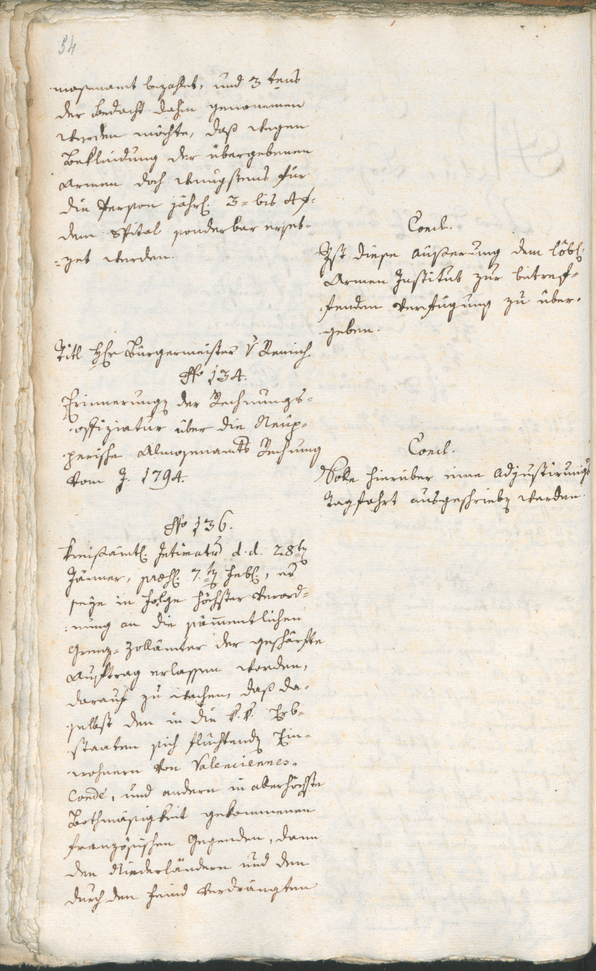 54
mosenamt bezahlt, und 3 tens
der Bedacht dahin genommen
werden möchte, daß wegen
Bekleidung der übergebenen
Armen doch wenigstens für
die Person jährl. 3= bis 4 f.
dem Spital sonderbar erset=
=zet werden.
Concl.
Ist diese äußerung dem löbl.
Armen Institut zur betref=
fenden Verfügung zu über=
geben.
Titl. Hr Bürgermeister v
No 134.
Erinnerung der Rechnungs=
offiziatur über die
Almosenamts Rechnung
vom J. 1794.
Concl.
Solle hierüber eine Adjustirungs
Tagfahrt ausgeschrieben werden.
No 136.
Kreisämtl. Intimatum d. d. 28ten
Jänner, præs. 7.ten Febl., es
seye in Folge höchster Verord=
nung an die sämmtlichen
Grenz=Zollämter der geschärfte
Auftrag erlassen worden,
darauf zu wachen, daß da=
selbst den in die k. k. Erb=
staaten sich flüchtenden Ein=
wohnern von Valenciennes=
Condé, und andern in allerhöchste
Bothmäsigkeit gekommenen
französischen Gegenden, dann
den Niederländern und den
durch den Feind verdrängten